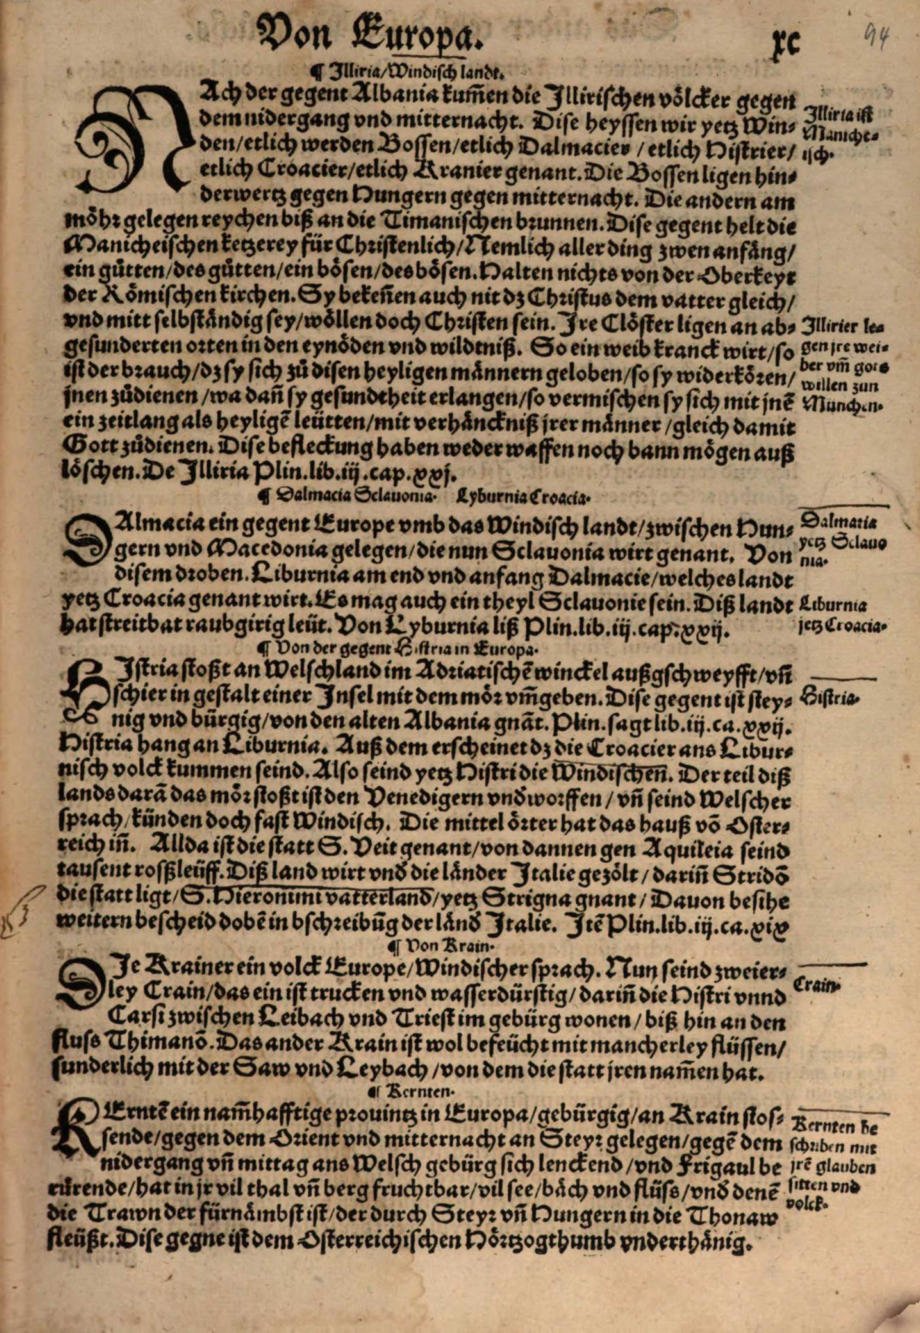 Von Europa.
xc
94
¶ Illiria/Windisch landt.
NAch der gegent Albania kum̃en die Illirischen völcker gegen
dem nidergang vnd mitternacht. Dise heyssen wir yetz Win⸗
den/etlich werden Bossen/etlich Dalmacier/etlich Histrier/
etlich Croacier/etlich Kranier genant. Die Bossen ligen hin⸗
derwertz gegen Hungern gegen mitternacht. Die andern am
möhr gelegen reychen biß an die Timanischen brunnen. Dise gegent helt die
Manicheischen ketzerey für Christenlich/Nemlich aller ding zwen anfäng/
ein gůtten/des gůtten/ein bösen/des bösen. Halten nichts von der Oberkeyt
der Römischen kirchen. Sy bekeñen auch nit dz Christus dem vatter gleich/
vnd mitt selbständig sey/wöllen doch Christen sein. Ire Clöster ligen an ab⸗
gesunderten orten in den eynöden vnd wildtniß. So ein weib kranck wirt/so
ist der brauch/dz sy sich zů disen heyligen männern geloben/so sy widerkören/
jnen zůdienen/wa dañ sy gesundtheit erlangen/so vermischen sy sich mit jnẽ
ein zeitlang als heyligẽ leütten/mit verhänckniß jrer männer/gleich damit
Gott zůdienen. Dise befleckung haben weder waffen noch bann mögen auß
löschen. De Illiria Plin.lib.iij.cap.xxj.
Illiria ist
Maniche⸗
isch.
Illirier le⸗
gen jre wei⸗
ber vm̃ gots
willen zun
München.
¶ Dalmacia Sclavonia. Lyburnia Croacia.
DAlmacia ein gegent Europe vmb das Windisch landt/zwischen Hun⸗
gern vnd Macedonia gelegen/die nun Sclavonia wirt genant. Von
disem droben. Liburnia am end vnd anfang Dalmacie/welches landt
yetz Croacia genant wirt. Es mag auch ein theyl Sclavonie sein. Diß landt
hat streitbat raubgirig leüt. Von Lyburnia liß Plin.lib.iij.cap.xxij.
Dalmatia
yetz Sclauo
nia.
Liburnia
jetz Croacia.
¶ Von der gegent Histria in Europa.
HIstria stoßt an Welschland im Adriatischẽ winckel außgschweyfft/vñ
schier in gestalt einer Insel mit dem mör vm̃geben. Dise gegent ist stey⸗
nig vnd bürgig/von den alten Albania gnãt. Plin. sagt lib.iij.ca.xxij.
Histria hang an Liburnia. Auß dem erscheinet dz die Croacier ans Libur⸗
nisch volck kummen seind. Also seind yetz Histri die Windischen. Der teil diß
lands darã das mör stoßt ist den Venedigern vndworffen/vñ seind Welscher
sprach/künden doch fast Windisch. Die mittel örter hat das hauß võ Oster⸗
reich iñ. Allda ist die statt S. Veit genant/von dannen gen Aquileia seind
tausent rossßleüff. Diß land wirt vnd die länder Italie gezölt/dariñ Stridõ
die statt ligt/S. Hieronimi vatterland/yetz Strigna gnant/Davon besihe
weitern bescheid dobẽ in bschreibũg der länd Italie. Itẽ Plin.lib.iij.ca.xix
Histria.
¶ Von Krain.
DIe Krainer ein volck Europe/Windischer sprach. Nun seind zweier⸗
ley Crain/das ein ist trucken vnd wasserdürstig/dariñ die Histri vnnd
Carsi zwischen Leibach vnd Triest im gebürg wonen/biß hin an den
fluss Thimanõ. Das ander Krain ist wol befeücht mit mancherley flüssen/
sunderlich mit der Saw vnd Leybach/von dem die statt jren nam̃en hat.
Crain.
¶ Kernten.
KErntẽ ein nam̃hafftige provintz in Europa/gebürgig/an Krain stos⸗
sende/gegen dem Orient vnd mitternacht an Steyr gelegen/gegẽ dem
nidergang vñ mittag ans Welsch gebürg sich lenckend/vnd Frigaul be
rürende/hat in jr vil thal vñ berg fruchtbar/vil see/bäch vnd flüss/vnd denẽ
die Trawn der fürnämbst ist/der durch Steyr vñ Hungern in die Thonaw
fleüßt. Dise gegne ist dem Osterreichischen Hörtzogthumb vnderthänig.
Kernten be
schriben mit
jrẽ glauben
sitten vnd
volck.